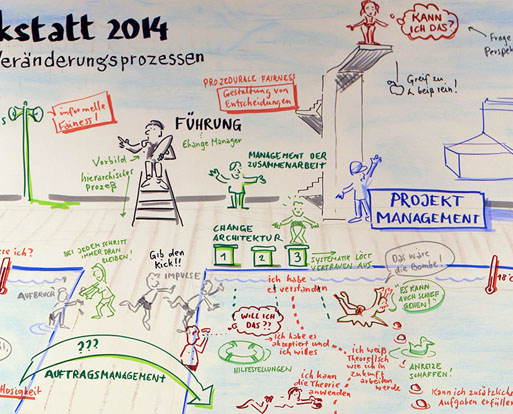 kstatt 2014
Veränderungsprozessen
informelle
Fairness!
PROZEDURALE FAIRNESS
Gestaltung von
Entscheidungen
KANN
ICH DAS?
Frage
Perspek
Greif zu
& beiß rein!
FÜHRUNG
Change Manager
Vorbild
hierarchischer
Prozeß
MANAGEMENT DER
ZUSAMMENARBEIT
PROJEKT
MANAGEMENT
CHANGE
ARCHITEKTUR
1
2
3
SYSTEMATIK LÖST
VERTRAUEN AUS
ere ich?
BEI JEDEM SCHRITT
IMMER DRAN
BLEIBEN!
Gib den
Kick!!
IMPULSE
AUFBRUCH
ich habe
es verstanden
Das wäre
die Bombe!
ES KANN
AUCH SCHIEF
GEHEN!
18°C
WILL ICH
DAS??
ich habe es
akzeptiert und
ich will es
ich weiß
theoretisch
wie ich in
Zukunft
arbeiten
werde
HILFESTELLUNGEN
ANREIZE
SCHAFFEN!
???
AUFTRAGSMANAGEMENT
losigkeit
ich kann
die Theorie
anwenden
Kann ich zusätzliche
Aufgaben erfüllen